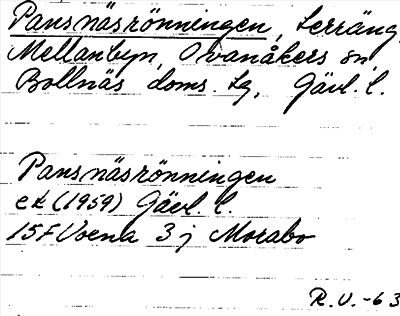 Pansnäsrönningen, terräng,
Mellanbyn, Ovanåkers sn,
Bollnäs doms. tg, Gävl. l.
Pansnäsrönningen
ek (1959) Gävl. l.
15F Voxna 3 j Morabo
R.V.-63